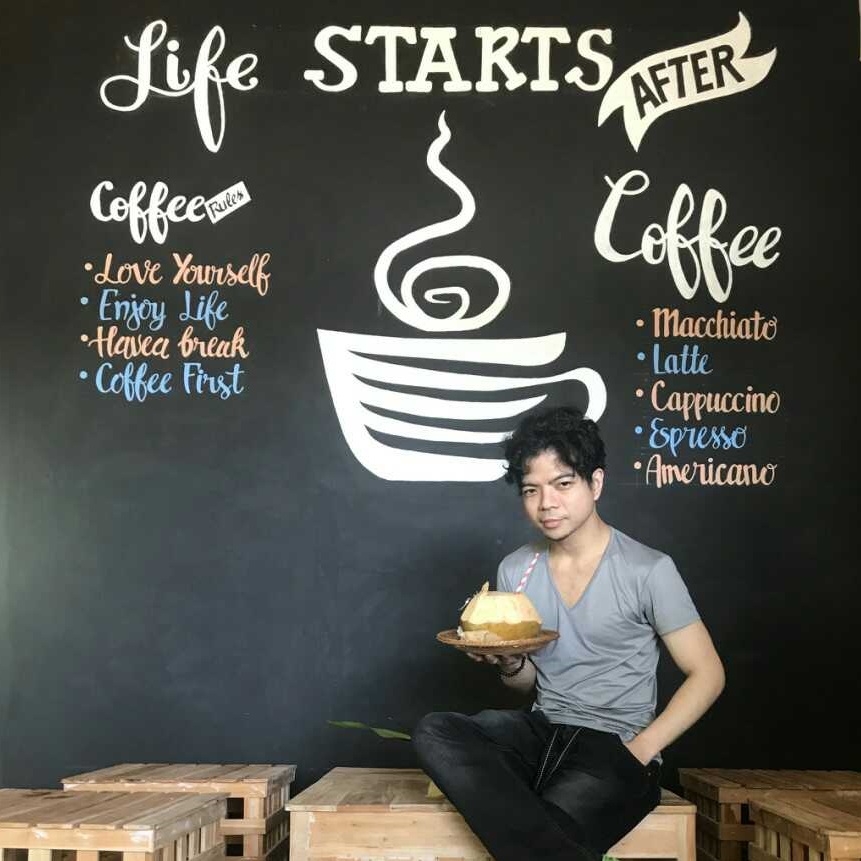 Life STARTS AFTER
Coffee
Coffee Rules
• Love Yourself
• Enjoy Life
• Havea break
• Coffee First
• Macchiato
• Latte
• Cappuccino
• Espresso
• Americano